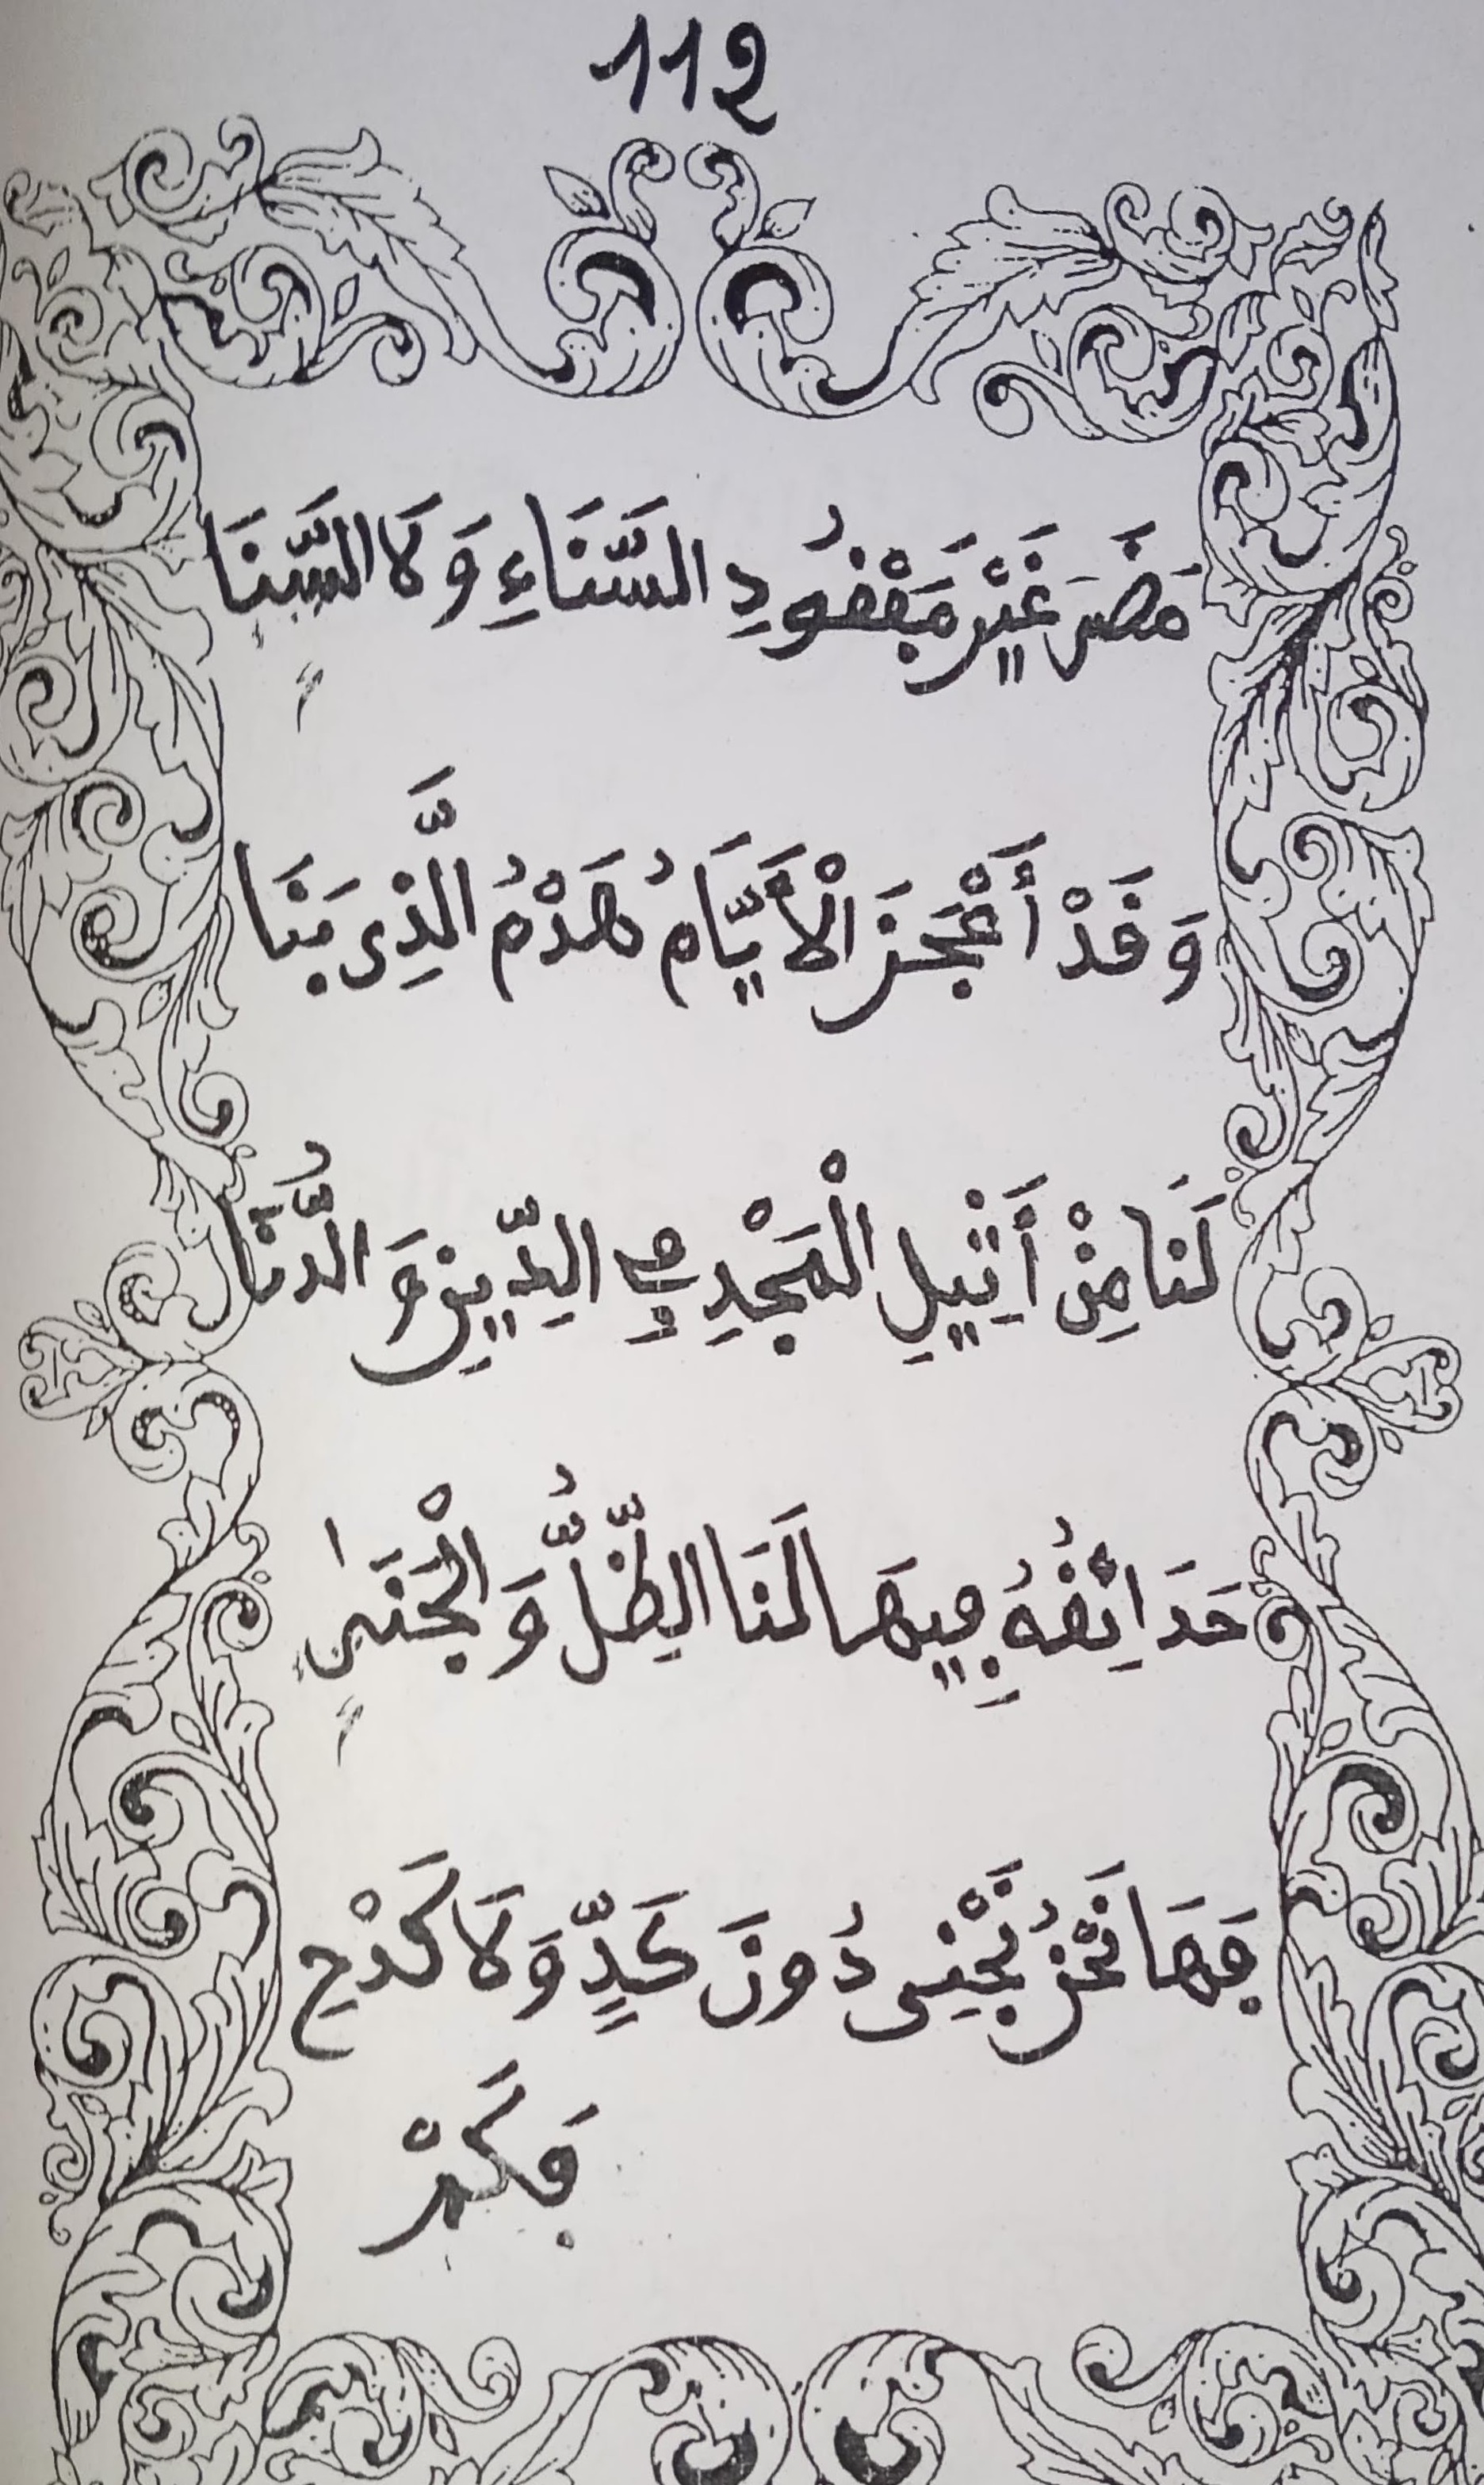 112
مَضَى غَيْرَ مَفْقُودِ السَّنَاءِ وَلَا السَّنَا
وَقَدْ أَعْجَزَ الْأَيَّامُ هَدْمُ الَّذِي بَنَا
لَنَا مِنْ أَثِيلِ الْمَجْدِ فِي الدِّينِ وَالدُّنَا
حَدَائِقُهُ فِيهَا لَنَا الظِّلُّ وَالْجَنَىٰ
فَهَا نَحْنُ نَجْنِي دُونَ كَدٍّ وَلَا كَدْحِ
فَكَمْ